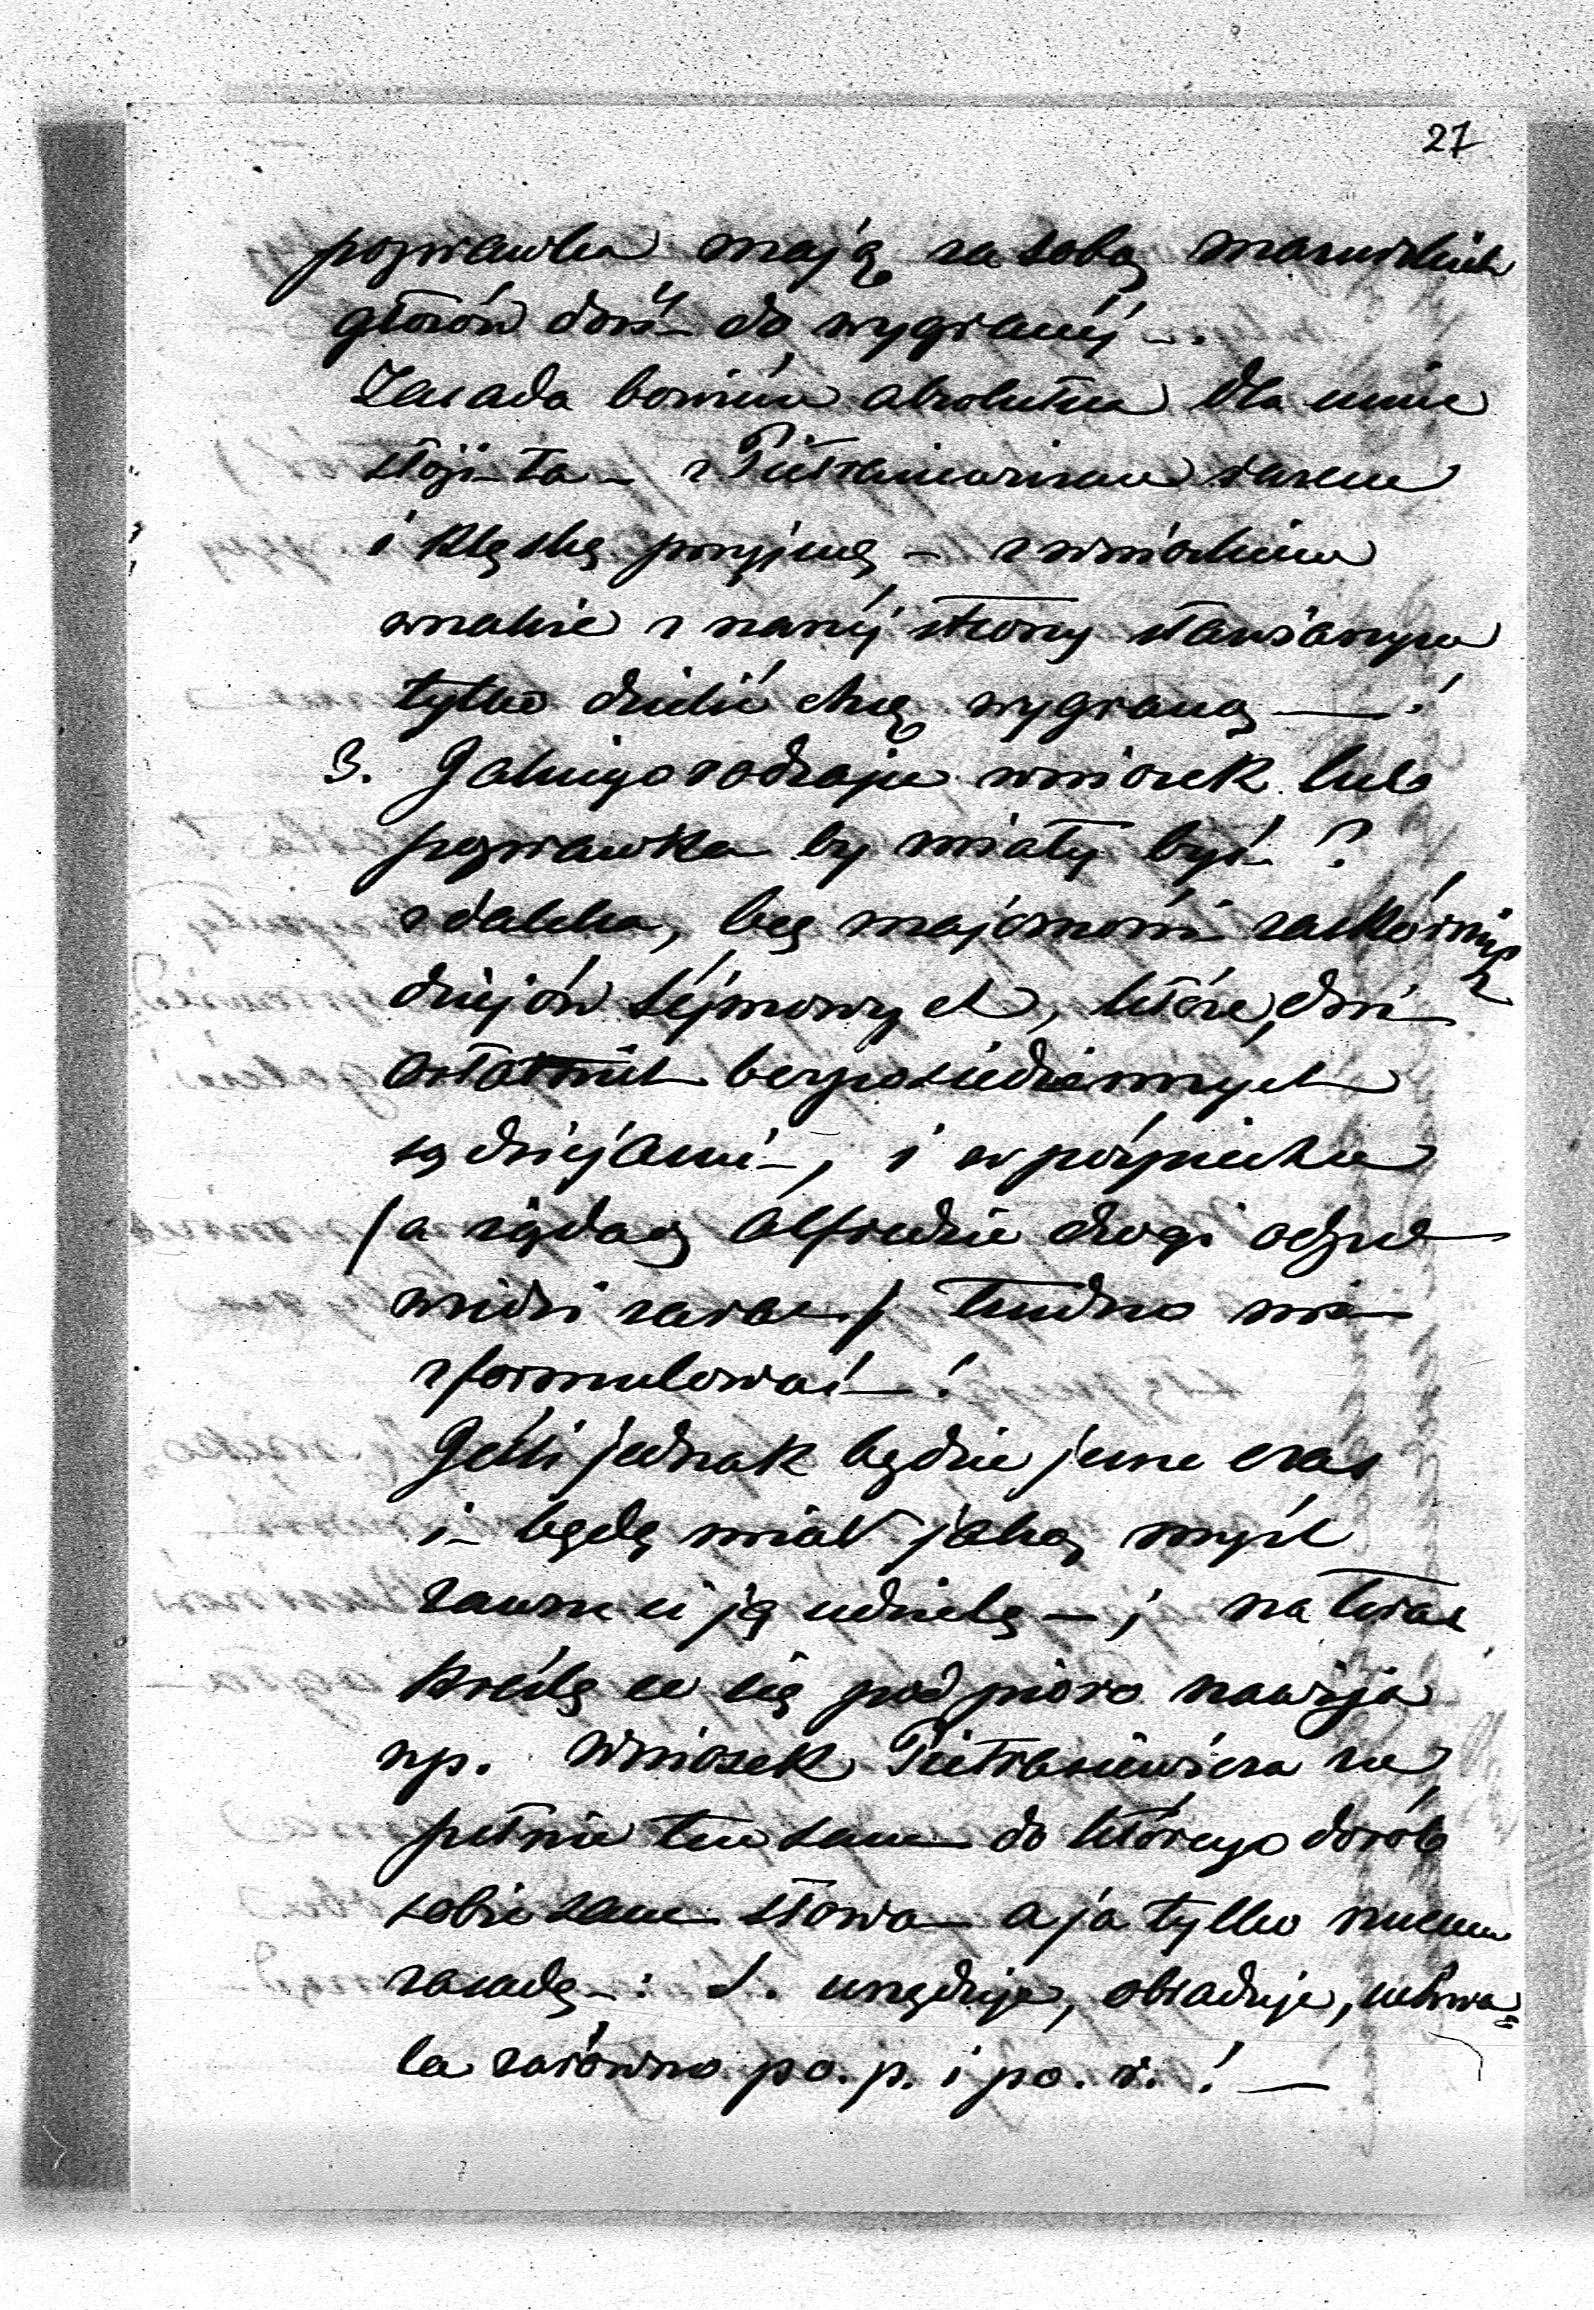 27
poprawka mają za sobą mazurskich
głosów dosyć do wygranéj —.
Zasada bowiem absolutna dla mnie
stoji ta — z Pietrasiewiczem razem
i klęskę przyjmę — z wnioskiem
wnakże z naszéj strony stawianym
tylko dzielić chcę wygraną — !
3. Jakiego rodzaju wniosek lub
poprawka by miały być ?
zdaleka, bez znajomości zaskórnych
dziejów séjmowych, które, dni
ostatnich bezposiedzennych
są dziejami —, i w pośpiechu
/a żądasz Alfredzie drogi odpo
wiedzi zaraz/ trudno mi
sformułować — !
Jeśli jednak będzie jeszcze czas
i będę miał jaką myśl
zawsze ci ją udzielę — ; na teraz
kréślę co się pod pióro nawija
np. wniosek Pietrasiewicza zu
pełnie ten sam do którego dorób
sobie sam słowa — a ja tylko rzucam
zasadę — : S. urzęduje, obraduje, uchwa=
la zarówno po. p. i po. r. ! —